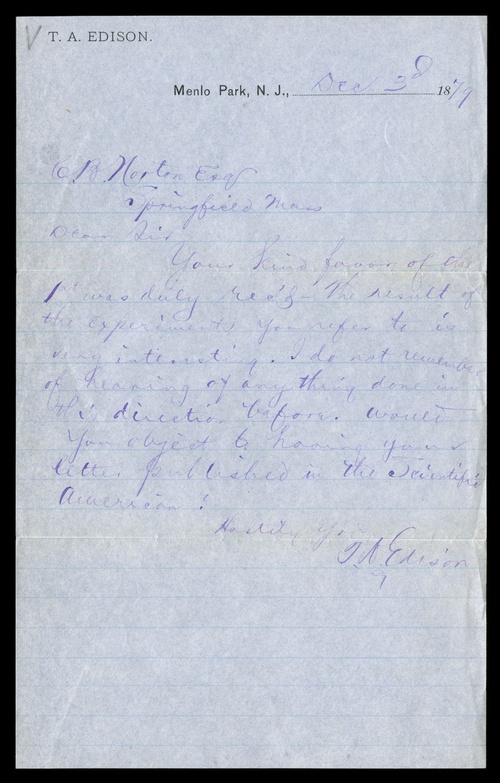 T. A. EDISON.
Menlo Park, N. J., Dec 3d 1879
C B Norton Esq
Springfield Mass
Dear Sir
Your kind favor of the
1st was duly rec'd - The result of
the experiments you refer to is
very interesting. I do not remember
of hearing of anything done in
this direction before. Would
you object to having your
letter published in the Scientific
American?
Yours
T. A. Edison